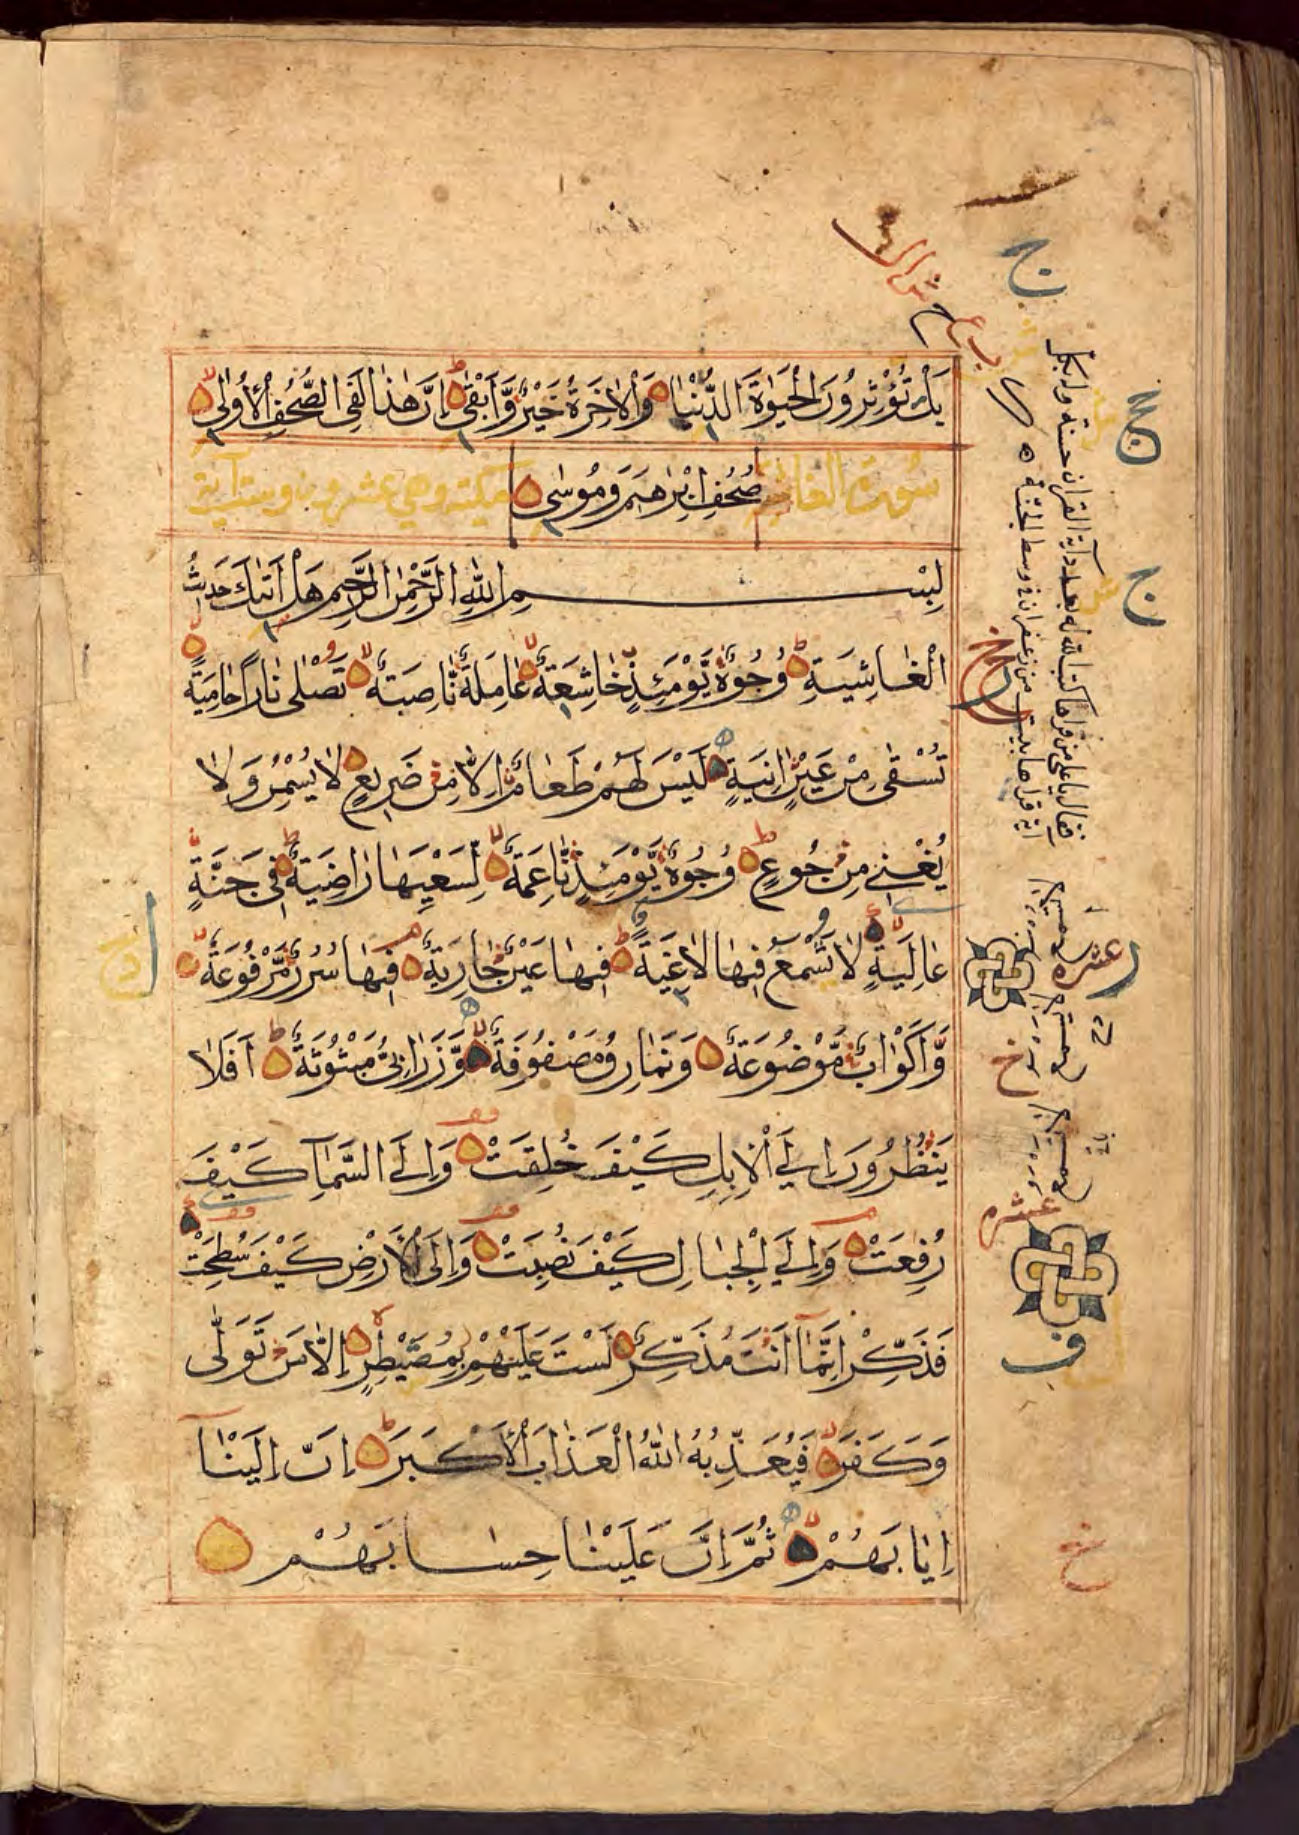 بَلْ تُؤْثِرُونَ الْحَيٰوةَ الدُّنْيَا وَالْاٰخِرَةُ خَيْرٌ وَّاَبْقٰى اِنَّ هٰذَا لَفِى الصُّحُفِ الْاُولٰى
سورة الغاشية صُحُفِ اِبْرٰهِيمَ وَمُوسٰى مكية وهي عشرون وست آية
بِسْمِ اللّٰهِ الرَّحْمٰنِ الرَّحِيمِ هَلْ اَتٰيكَ حَدِيثُ
الْغَاشِيَةِ وُجُوهٌ يَّوْمَئِذٍ خَاشِعَةٌ عَامِلَةٌ نَّاصِبَةٌ تَصْلٰى نَارًا حَامِيَةً
تُسْقٰى مِنْ عَيْنٍ اٰنِيَةٍ لَيْسَ لَهُمْ طَعَامٌ اِلَّا مِنْ ضَرِيعٍ لَا يُسْمِنُ وَلَا
يُغْنِي مِنْ جُوعٍ وُجُوهٌ يَّوْمَئِذٍ نَّاعِمَةٌ لِّسَعْيِهَا رَاضِيَةٌ فِي جَنَّةٍ
عَالِيَةٍ لَا تَسْمَعُ فِيهَا لَاغِيَةً فِيهَا عَيْنٌ جَارِيَةٌ فِيهَا سُرُرٌ مَّرْفُوعَةٌ
وَّاَكْوَابٌ مَّوْضُوعَةٌ وَنَمَارِقُ مَصْفُوفَةٌ وَّزَرَابِيُّ مَبْثُوثَةٌ اَفَلَا
يَنْظُرُونَ اِلَى الْاِبِلِ كَيْفَ خُلِقَتْ وَاِلَى السَّمَآءِ كَيْفَ
رُفِعَتْ وَاِلَى الْجِبَالِ كَيْفَ نُصِبَتْ وَاِلَى الْاَرْضِ كَيْفَ سُطِحَتْ
فَذَكِّرْ اِنَّمَآ اَنْتَ مُذَكِّرٌ لَسْتَ عَلَيْهِمْ بِمُصَيْطِرٍ اِلَّا مَنْ تَوَلّٰى
وَكَفَرَ فَيُعَذِّبُهُ اللّٰهُ الْعَذَابَ الْاَكْبَرَ اِنَّ اِلَيْنَآ
اِيَابَهُمْ ثُمَّ اِنَّ عَلَيْنَا حِسَابَهُمْ
عشره
عشره